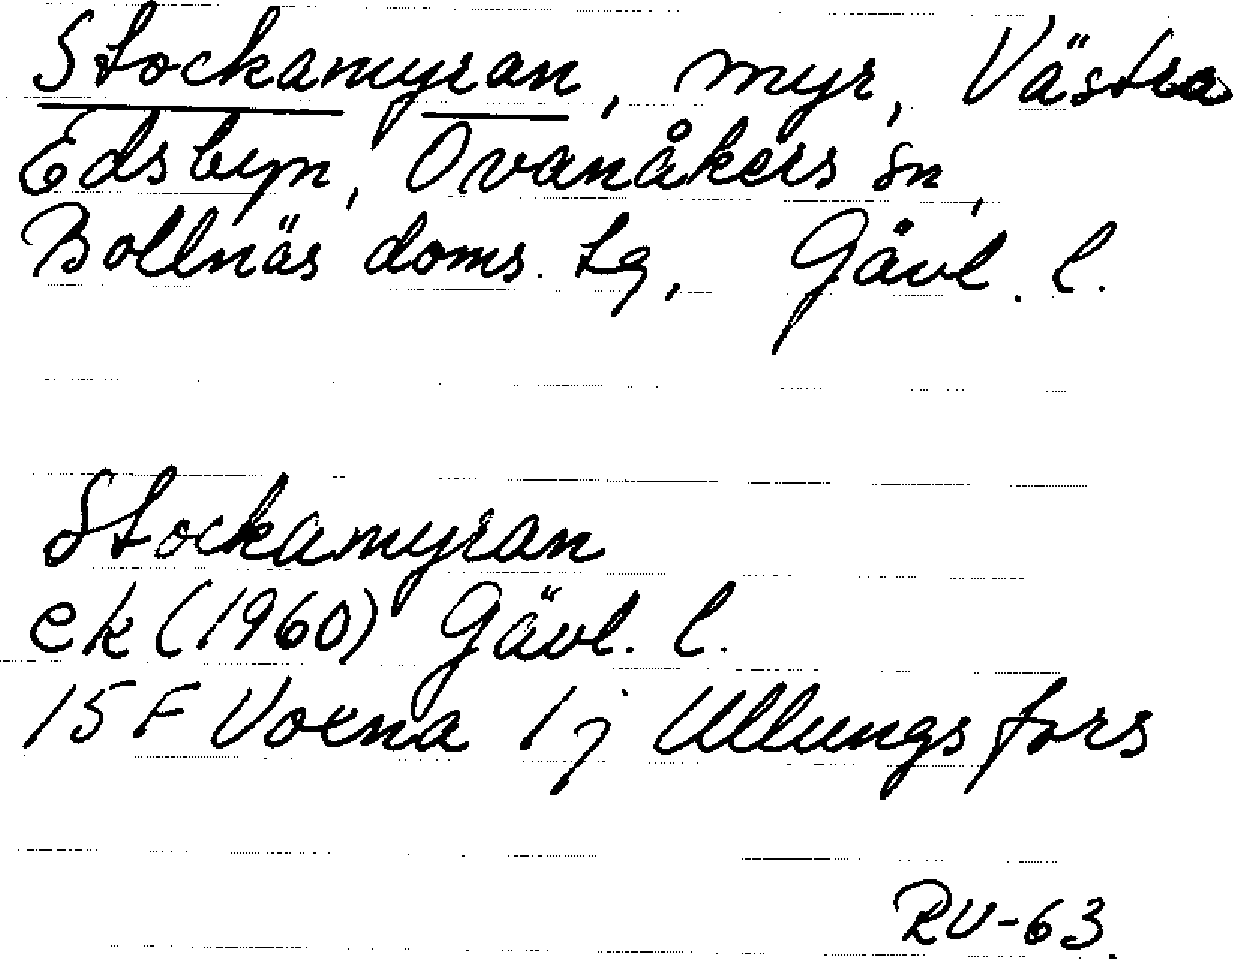 Stockamyran, myr, Västra
Edsbyn, Ovanåkers sn,
Bollnäs doms. tg, Gävl. l.
Stockamyran
ek (1960) Gävl. l.
15 F Voxna 1 j Ullungsfors
RV-63.